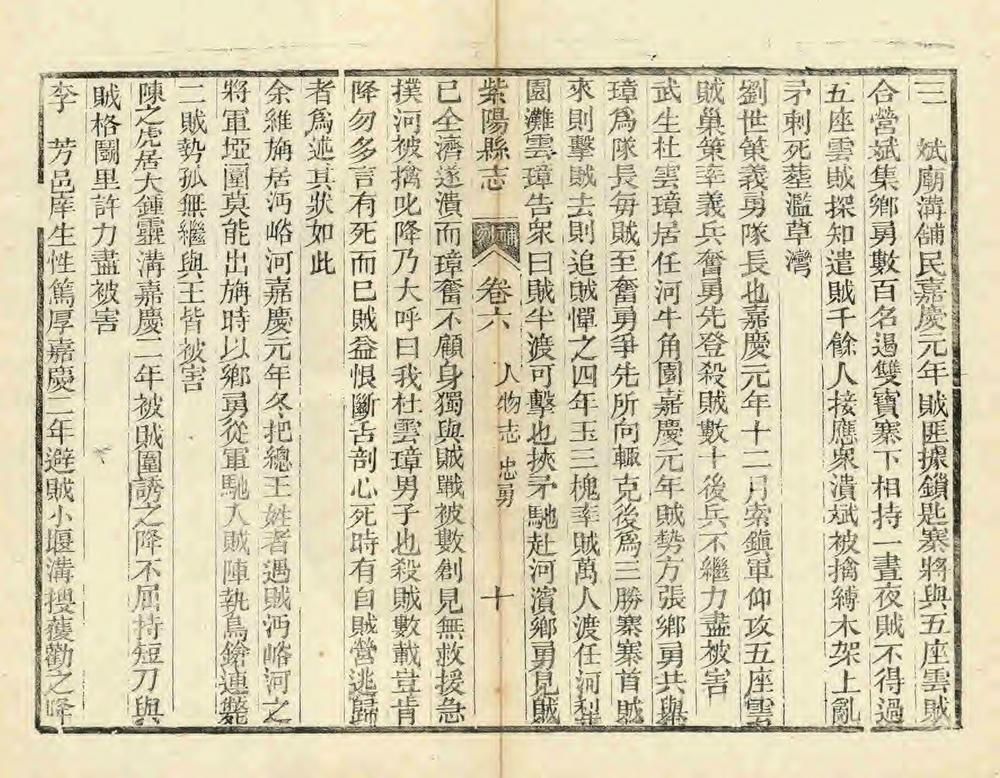 三　斌廟溝舖民嘉慶元年賊匪據鎖匙寨將與五座雲賊
合營斌集鄉勇數百名遏雙寶寨下相持一晝夜賊不得過
五座雲賊探知遣賊千餘人接應衆潰斌被擒縛木架上亂
矛刺死塟濫草灣
劉世策義勇隊長也嘉慶元年十二月索鎮軍仰攻五座雲
賊巢策率義兵奮勇先登殺賊數十後兵不繼力盡被害
武生杜雲璋居任河牛角園嘉慶元年賊勢方張鄉勇共舉
璋爲隊長每賊至奮勇爭先所向輒克後爲三勝寨寨首賊
來則擊賊去則追賊憚之四年玉三槐率賊萬人渡任河梨
園灘雲璋告衆曰賊半渡可擊也挾矛馳赴河濱鄉勇見賊
紫陽縣志　卷六　人物志　忠勇　十
已全濟遂潰而璋奮不顧身獨與賊戰被數創見無救援急
撲河被擒叱降乃大呼曰我杜雲璋男子也殺賊數載豈肯
降勿多言有死而已賊益恨斷舌剖心死時有自賊營逃歸
者爲述其狀如此
余維旃居沔峪河嘉慶元年冬把總王姓者遇賊沔峪河之
將軍埡圍莫能出旃時以鄉勇從軍馳入賊陣執鳥鎗連斃
二賊勢孤無繼與王皆被害
陳之虎居大鍾靈溝嘉慶二年被賊圍誘之降不屈持短刀與
賊格鬭里許力盡被害
李　芳邑庠生性篤厚嘉慶二年避賊小堰溝搜獲勸之降